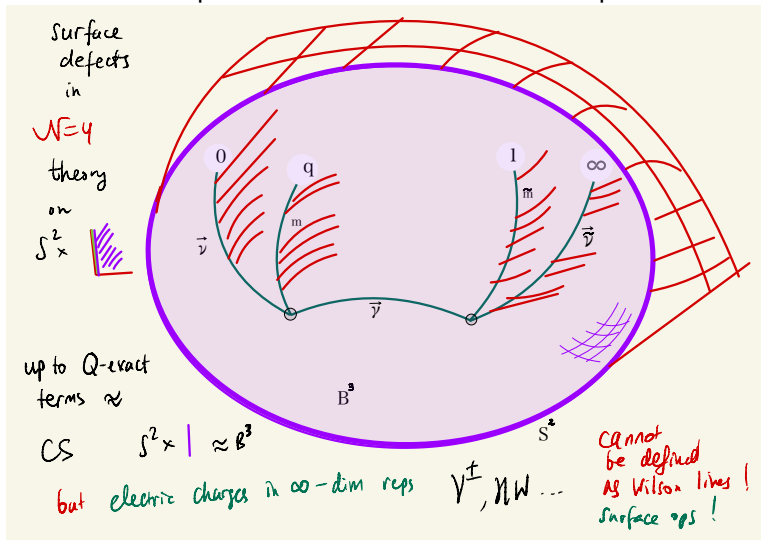 surface
defects
in
N=4
theory
on
S² ×
0
q
1
∞
m
m̃
ν⃗
ν⃗̃
ν⃗
up to Q-exact
terms ≈
B³
S²
CS S² × | ≈ B³
but electric charges in ∞-dim reps V±, HW ...
cannot
be defined
as Wilson lines!
surface ops!